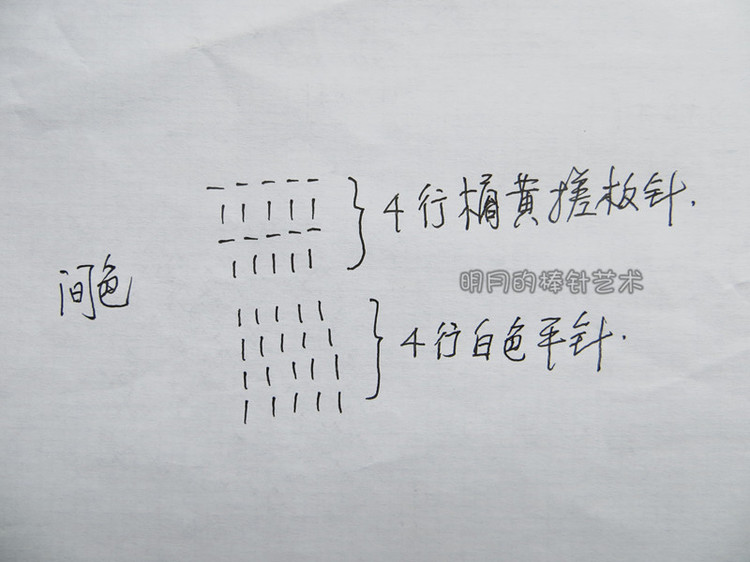 4行橘黄搓板针.
明月的棒针艺术
间色
4行白色平针.